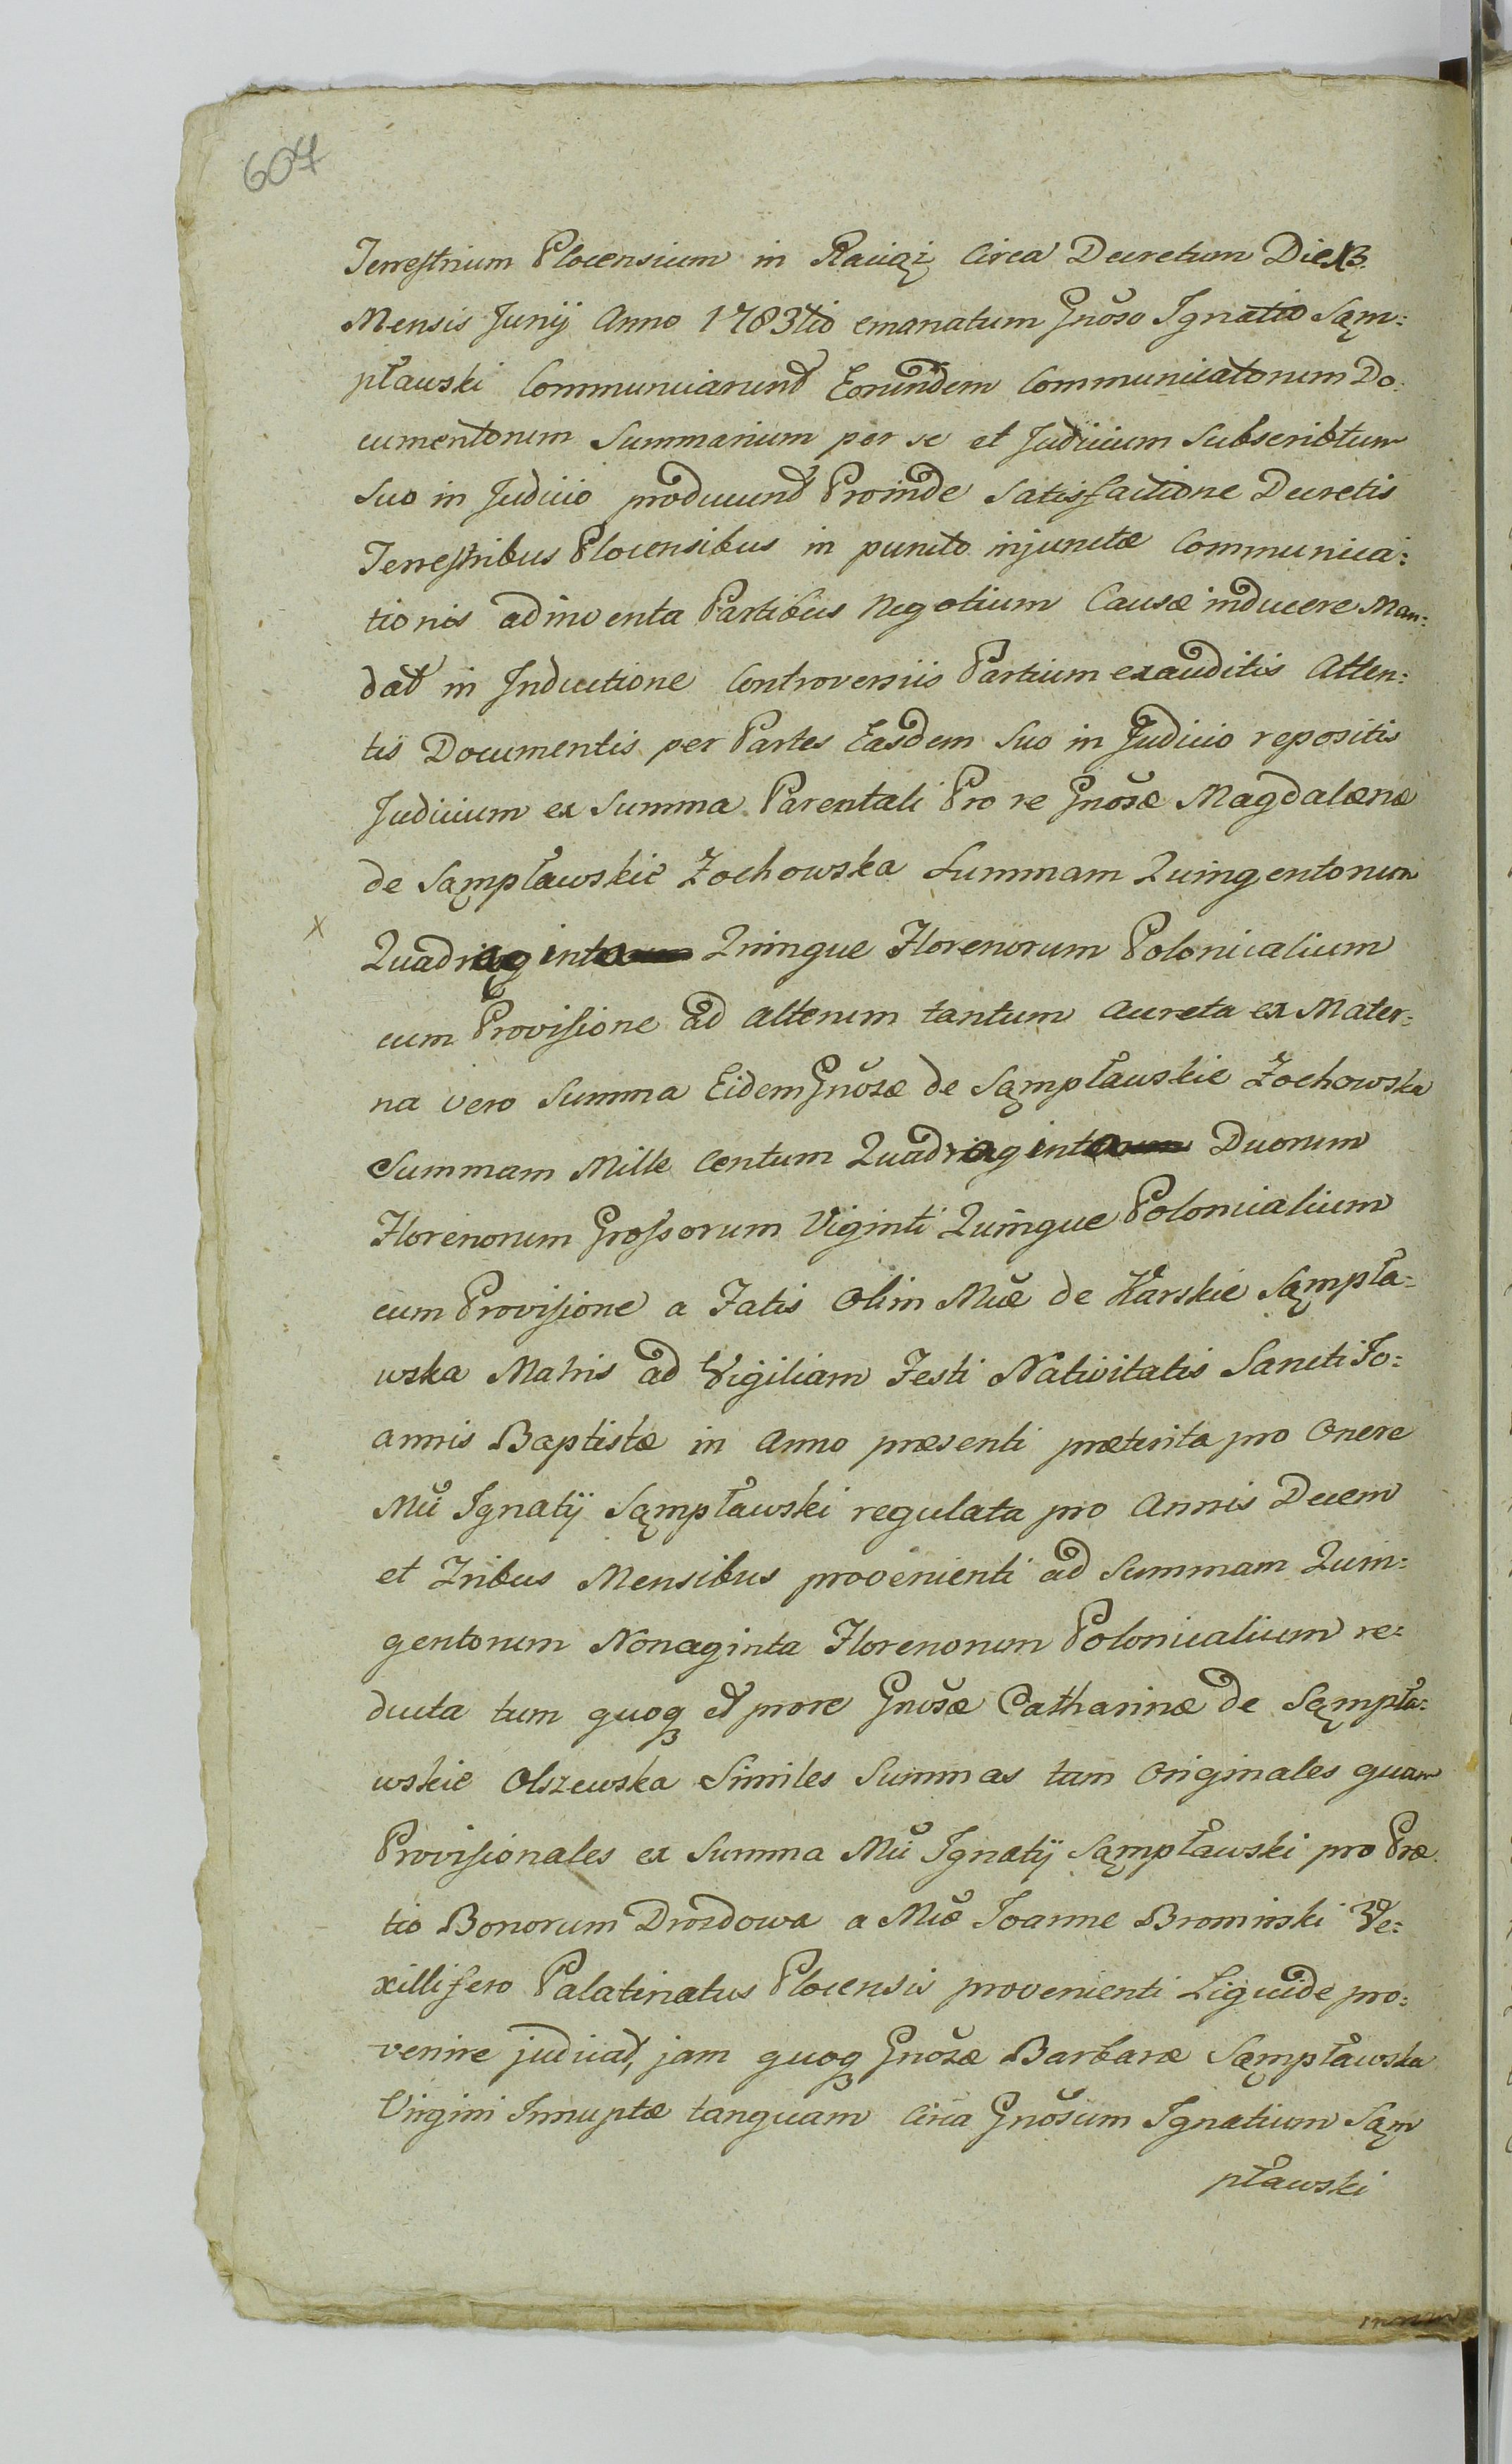 607
Terrestrium Plocensium in Raciąż Circa Decretum Die 13.
Mensis Junij Anno 1783tio emanatum Gnõso Ignatio Sąm:
pławski Communicarunt Eorundem Communicatorum Do:
cumentorum Summarium per se et Judicium Subscribtum
Suo in Judicio producunt Proinde Satisfactione Decretis
Terrestribus Plocensibus in puncto injunctæ Communica:
tionis adinventa Partibus Negotium Causæ inducere Man:
dat in Inductione Controversiis Partium exauditis Atten:
tis Documentis per Partes Easdem Suo in Judicio repositis
Judicium ex Summa Parentali Pro re Gnõsæ Magdalænæ
de Sąmpławskie Zochowska Summam Quingentorum
x Quadraginta Quinque Florenorum Polonicalium
cum Provisione ad alterum tantum Aucreta ex Mater:
na vero Summa Eidem Gnõsæ de Sąmpławskie Zochowska
Summam Mille Centum Quadraginta Duorum
Florenorum Grossorum Viginti Quinque Polonicalium
cum Provisione a Fatis Olim Mcæ de Karskie Sąmpła:
wska Matris ad Vigiliam Festi Nativitatis Sancti Jo:
annis Baptistæ in Anno præsenti præterita pro Onere
Mci Ignatij Sąmpławski regulata pro Annis Decem
et Tribus Mensibus provenienti ad Summam Quin:
gentorum Nonaginta Florenorum Polonicalium re:
ducta tum quoq et prore Gnõsæ Catharinæ de Sąmpła:
wskie Olszewska Similes Summas tam Originales quam
Provisionales ex Summa Mci Ignatij Sąmpławski pro Præ
tio Bonorum Drozdowa a Mco Joanne Brominski Ve:
xillifero Palatinatus Plocensis provenienti Liquide pro:
venire judicat, jam quoq Gnõsæ Barbaræ Sąmpławska
Virgini Innuptæ tanquam Circa Gnõsum Ignatium Sąm
pławski